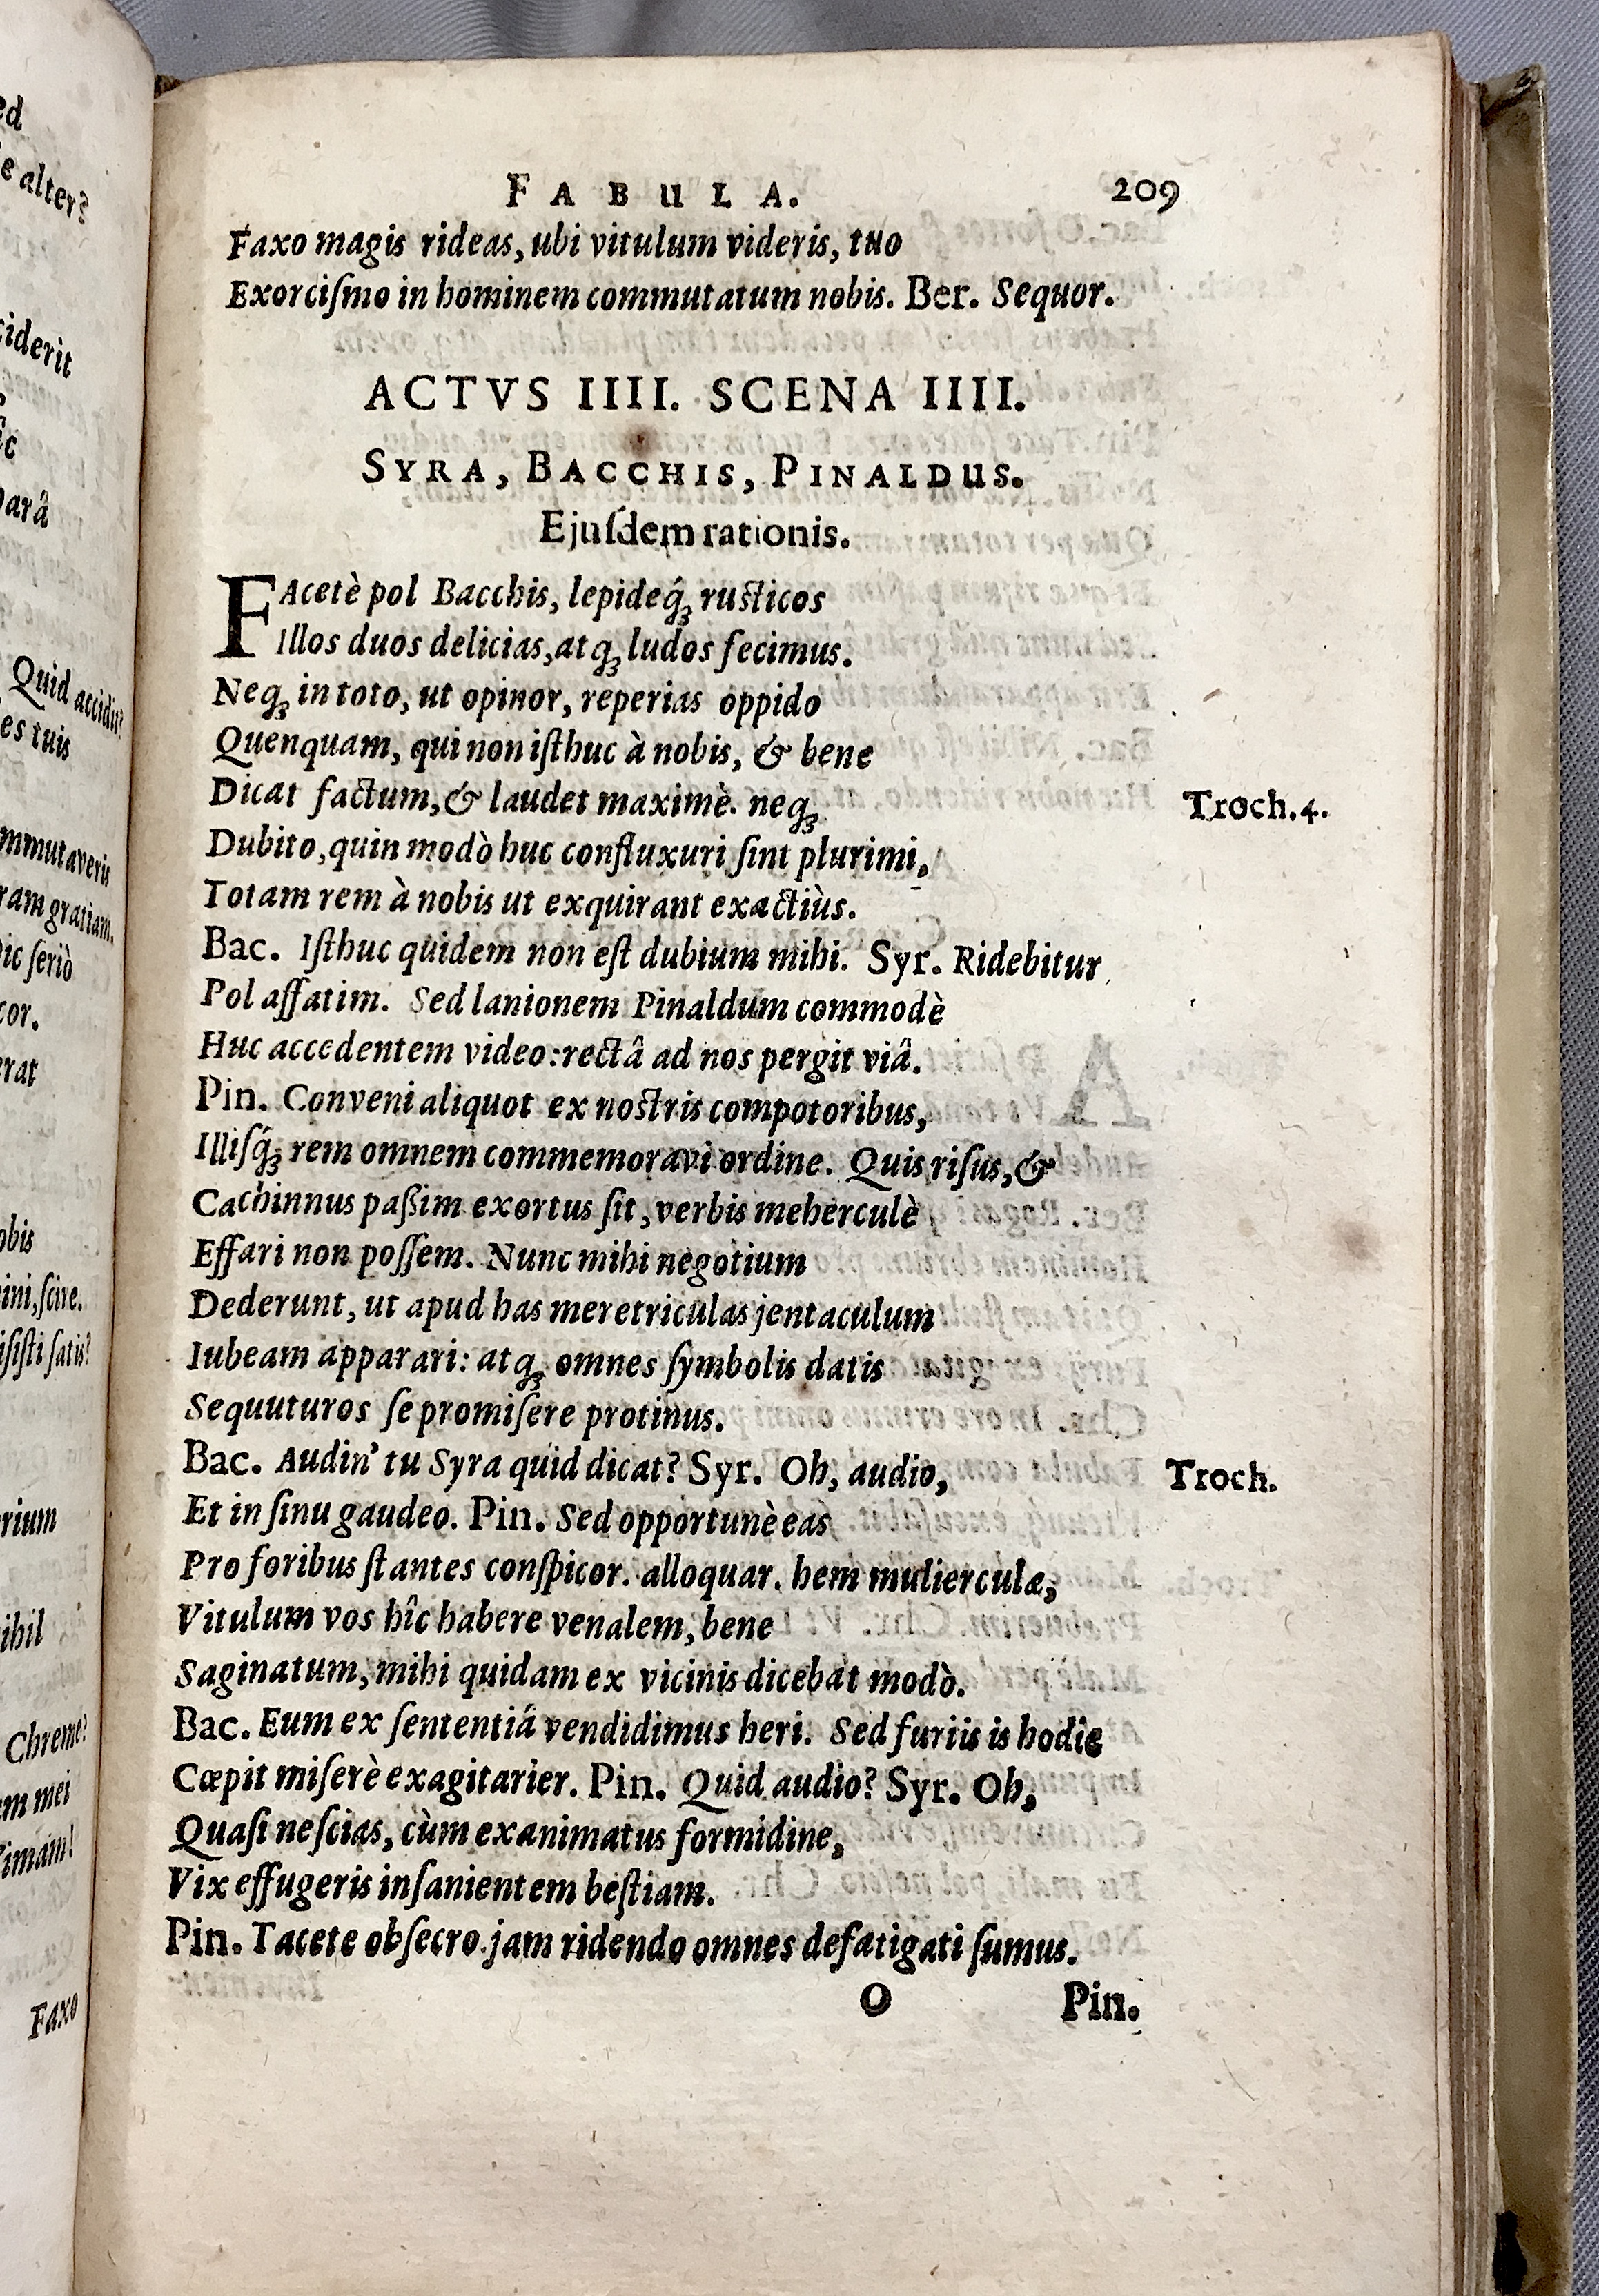 ed
e alter?
ciderit
c
parâ
Quid accidit?
es tuis
mmutaveris
ram gratiam.
ic ſeriò
cor.
erat
obis
ini, ſcire.
iſiſti ſatis?
rium
ihil
Chreme?
m mei
imam!
Faxo
FABULA. 209
Faxo magis rideas, ubi vitulum videris, tuo
Exorciſmo in hominem commutatum nobis. Ber. Sequor.
ACTVS IIII. SCENA IIII.
SYRA, BACCHIS, PINALDUS.
Ejuſdem rationis.
FAcetè pol Bacchis, lepideq́ꝫ ruſticos
Illos duos delicias, atqꝫ ludos fecimus.
Neqꝫ in toto, ut opinor, reperias oppido
Quenquam, qui non iſthuc à nobis, & bene
Dicat factum, & laudet maximè. neqꝫ
Troch.4.
Dubito, quin modò huc confluxuri ſint plurimi,
Totam rem à nobis ut exquirant exactiùs.
Bac. Iſthuc quidem non eſt dubium mihi. Syr. Ridebitur
Pol affatim. Sed lanionem Pinaldum commodè
Huc accedentem video: rectâ ad nos pergit viâ.
Pin. Conveni aliquot ex noſtris compotoribus,
Illiſq́ꝫ rem omnem commemoravi ordine. Quis riſus, &
Cachinnus paßim exortus ſit, verbis meherculè
Effari non poſſem. Nunc mihi negotium
Dederunt, ut apud has meretriculas jentaculum
Iubeam apparari: atqꝫ omnes ſymbolis datis
Sequuturos ſe promiſere protinus.
Bac. Audin' tu Syra quid dicat? Syr. Oh, audio,
Troch.
Et in ſinu gaudeo. Pin. Sed opportunè eas
Pro foribus ſtantes conſpicor. alloquar. hem mulierculæ,
Vitulum vos hîc habere venalem, bene
Saginatum, mihi quidam ex vicinis dicebat modò.
Bac. Eum ex ſententiâ vendidimus heri. Sed furiis is hodie
Cœpit miſerè exagitarier. Pin. Quid audio? Syr. Oh,
Quaſi neſcias, cùm exanimatus formidine,
Vix effugeris inſanientem beſtiam.
Pin. Tacete obſecro. jam ridendo omnes defatigati ſumus.
O Pin.